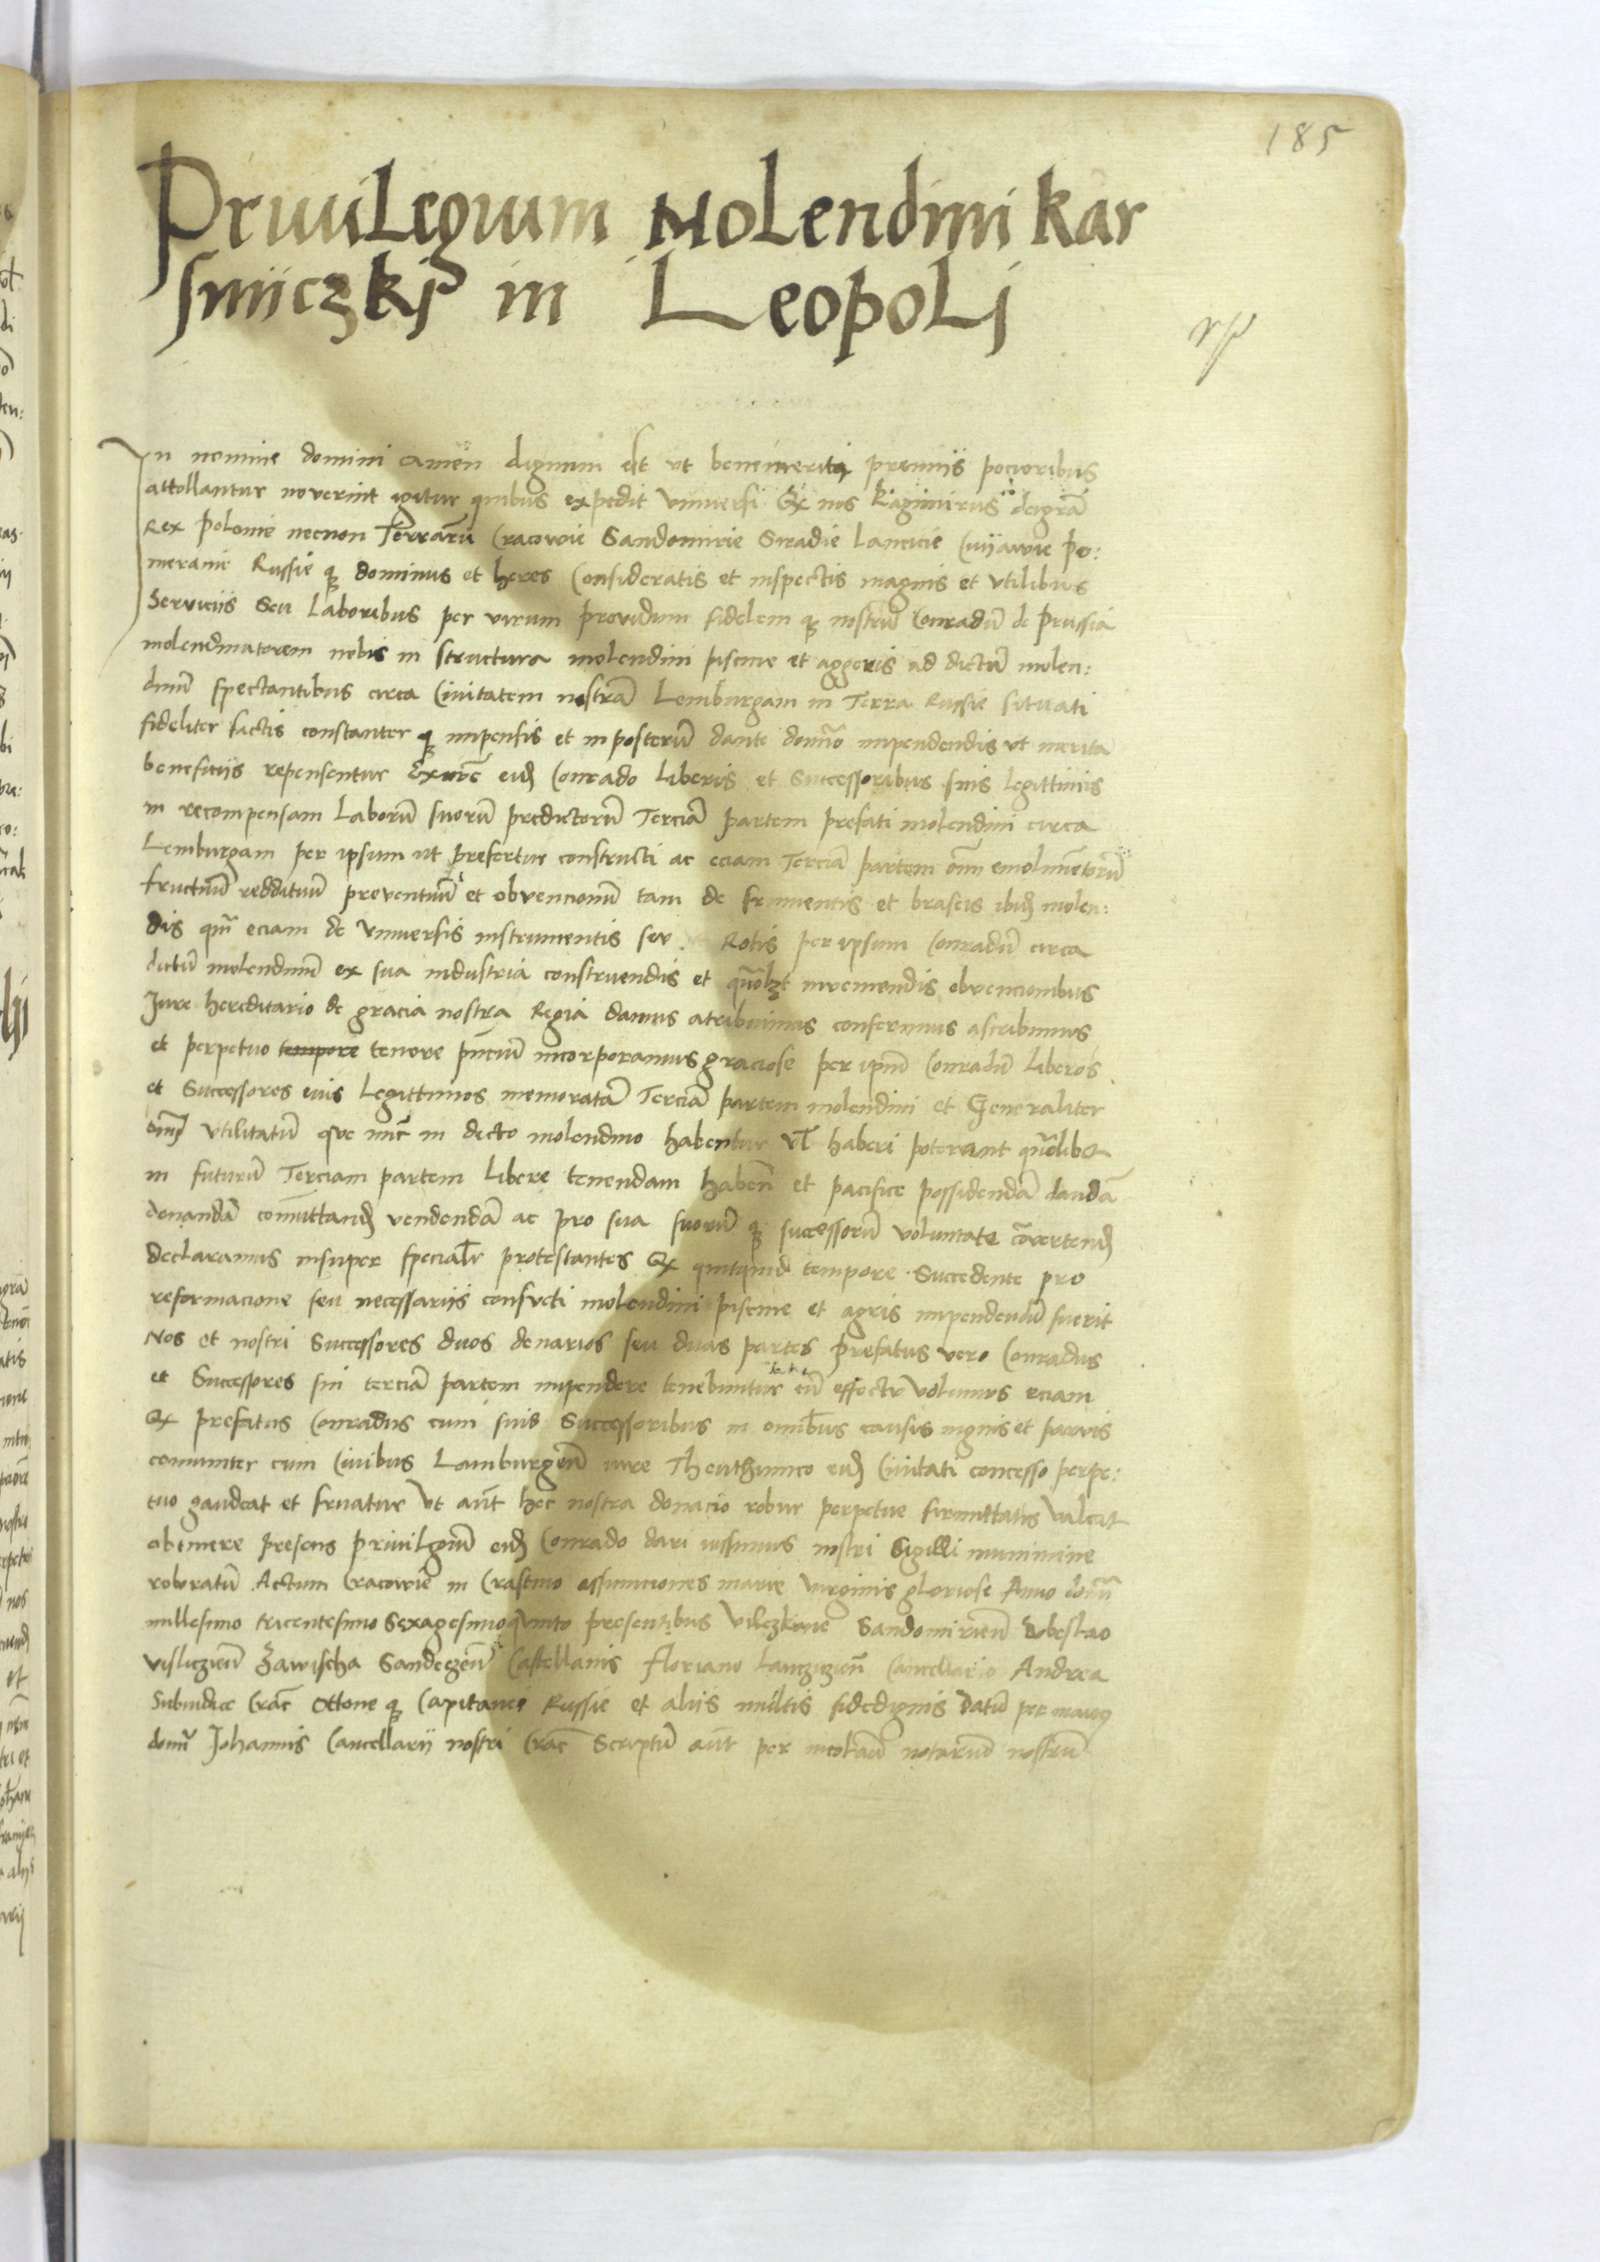 185
Privilegium Molendini kar
smiiczkij in Leopoli
In nomine domini amen dignum est ut benemeriti premiis pocioribus
attollantur noverint igitur quibus expedit universi Qz nos kazimirus dei grã
Rex polonie necnon Terrarũ Cracovie Sandomirie Siradie Lancicie Cuijavie po:
meranie Russie qz dominus et heres Consideratis et inspectis magnis et utilibus
Serviciis seu Laboribus per virum providum fidelem qz nostrũ Conradũ de prussia
molendinatorem nobis in structura molendini piscine et aggeris ad dictũ molen:
dinũ spectantibus circa Civitatem nostrã Lemburgam in Terra Russie situati
fideliter factis constanter qz impensis et inposterũ dante domĩo impendendis ut merita
beneficiis repensentur eidẽ Conrado Liberis et Successoribus suis Legittimis
in recompensam Laborũ suorũ predictorũ Terciã partem prefati molendini circa
Lemburgam per ipsum ut prefertur constructi ac eciam Terciã partem om̃i emolimẽtorũ
fructuũ reddituũ proventuũ et obvencionũ tam de frumentis et braseis ibidẽ molen:
dis quã eciam de universis instrumentis seu Rotis per ipsum Conradũ circa
dictũ molendinũ ex sua industria construendis et quãolzt inveniendis obvencionibus
Jure hereditario de gracia nostra Regia damus atribuimus conferimus ascribimus
et perpetuo tempore tenore pñciũ incorporamus graciose per ipm̃ Conradũ liberos
et Successores eius Legittimos memoratã Terciã partem molendini et Generaliter
om̃i utilitatũ que nũc in dicto molendino habentur vl̃ haberi poterunt quõlibet
in futurũ Terciam partem libere tenendam habeñ et pacifice possidendã dandã
donandã comittandẽ vendendã ac pro sua suorũ qz successorũ voluntate cõvertendẽ
declaramus insuper specialr̃ protestantes Qz quitquid tempore Succedente pro
reformacione seu necessariis consueti molendini piscine et agris impendendũ fuerit
Nos et nostri Successores duos denarios seu duas partes prefatus vero Conradus
et Successores sui terciã partem impendere tenebuntur cũ effectu volumus eciam
Qz prefatus Conradus cum suis Successoribus in omĩbus causis mgnis et parvis
comuniter cum Civibus Lamburgeñ iure Theuthunico eidẽ Civitati concesso perpe:
tuo gaudeat et fruatur ut aũt hec nostra donacio robur perpetue firmittatis valeat
obtinere presens privilgiũ eidẽ Conrado dari iussimus nostri Sigilli munimine
roboratũ Actum Cracovie in Crastino assumciones marie virginis gloriose Anno domĩ
millesimo tricentesimo Sexagesimoquinto presentibus Sandomirieñ
visliczieñ Zawischa Sandeczeñ Castellanis floriano lanczicieñ Cancellario Andrea
Subiudice Crac̃ Ottone qz Capitaneo Russie et aliis multis fidedignis datũ per manus
domĩ Johannis Cancellarii nostri Crac̃ Scriptũ aũt per nicolaũ notariũ nostrũ